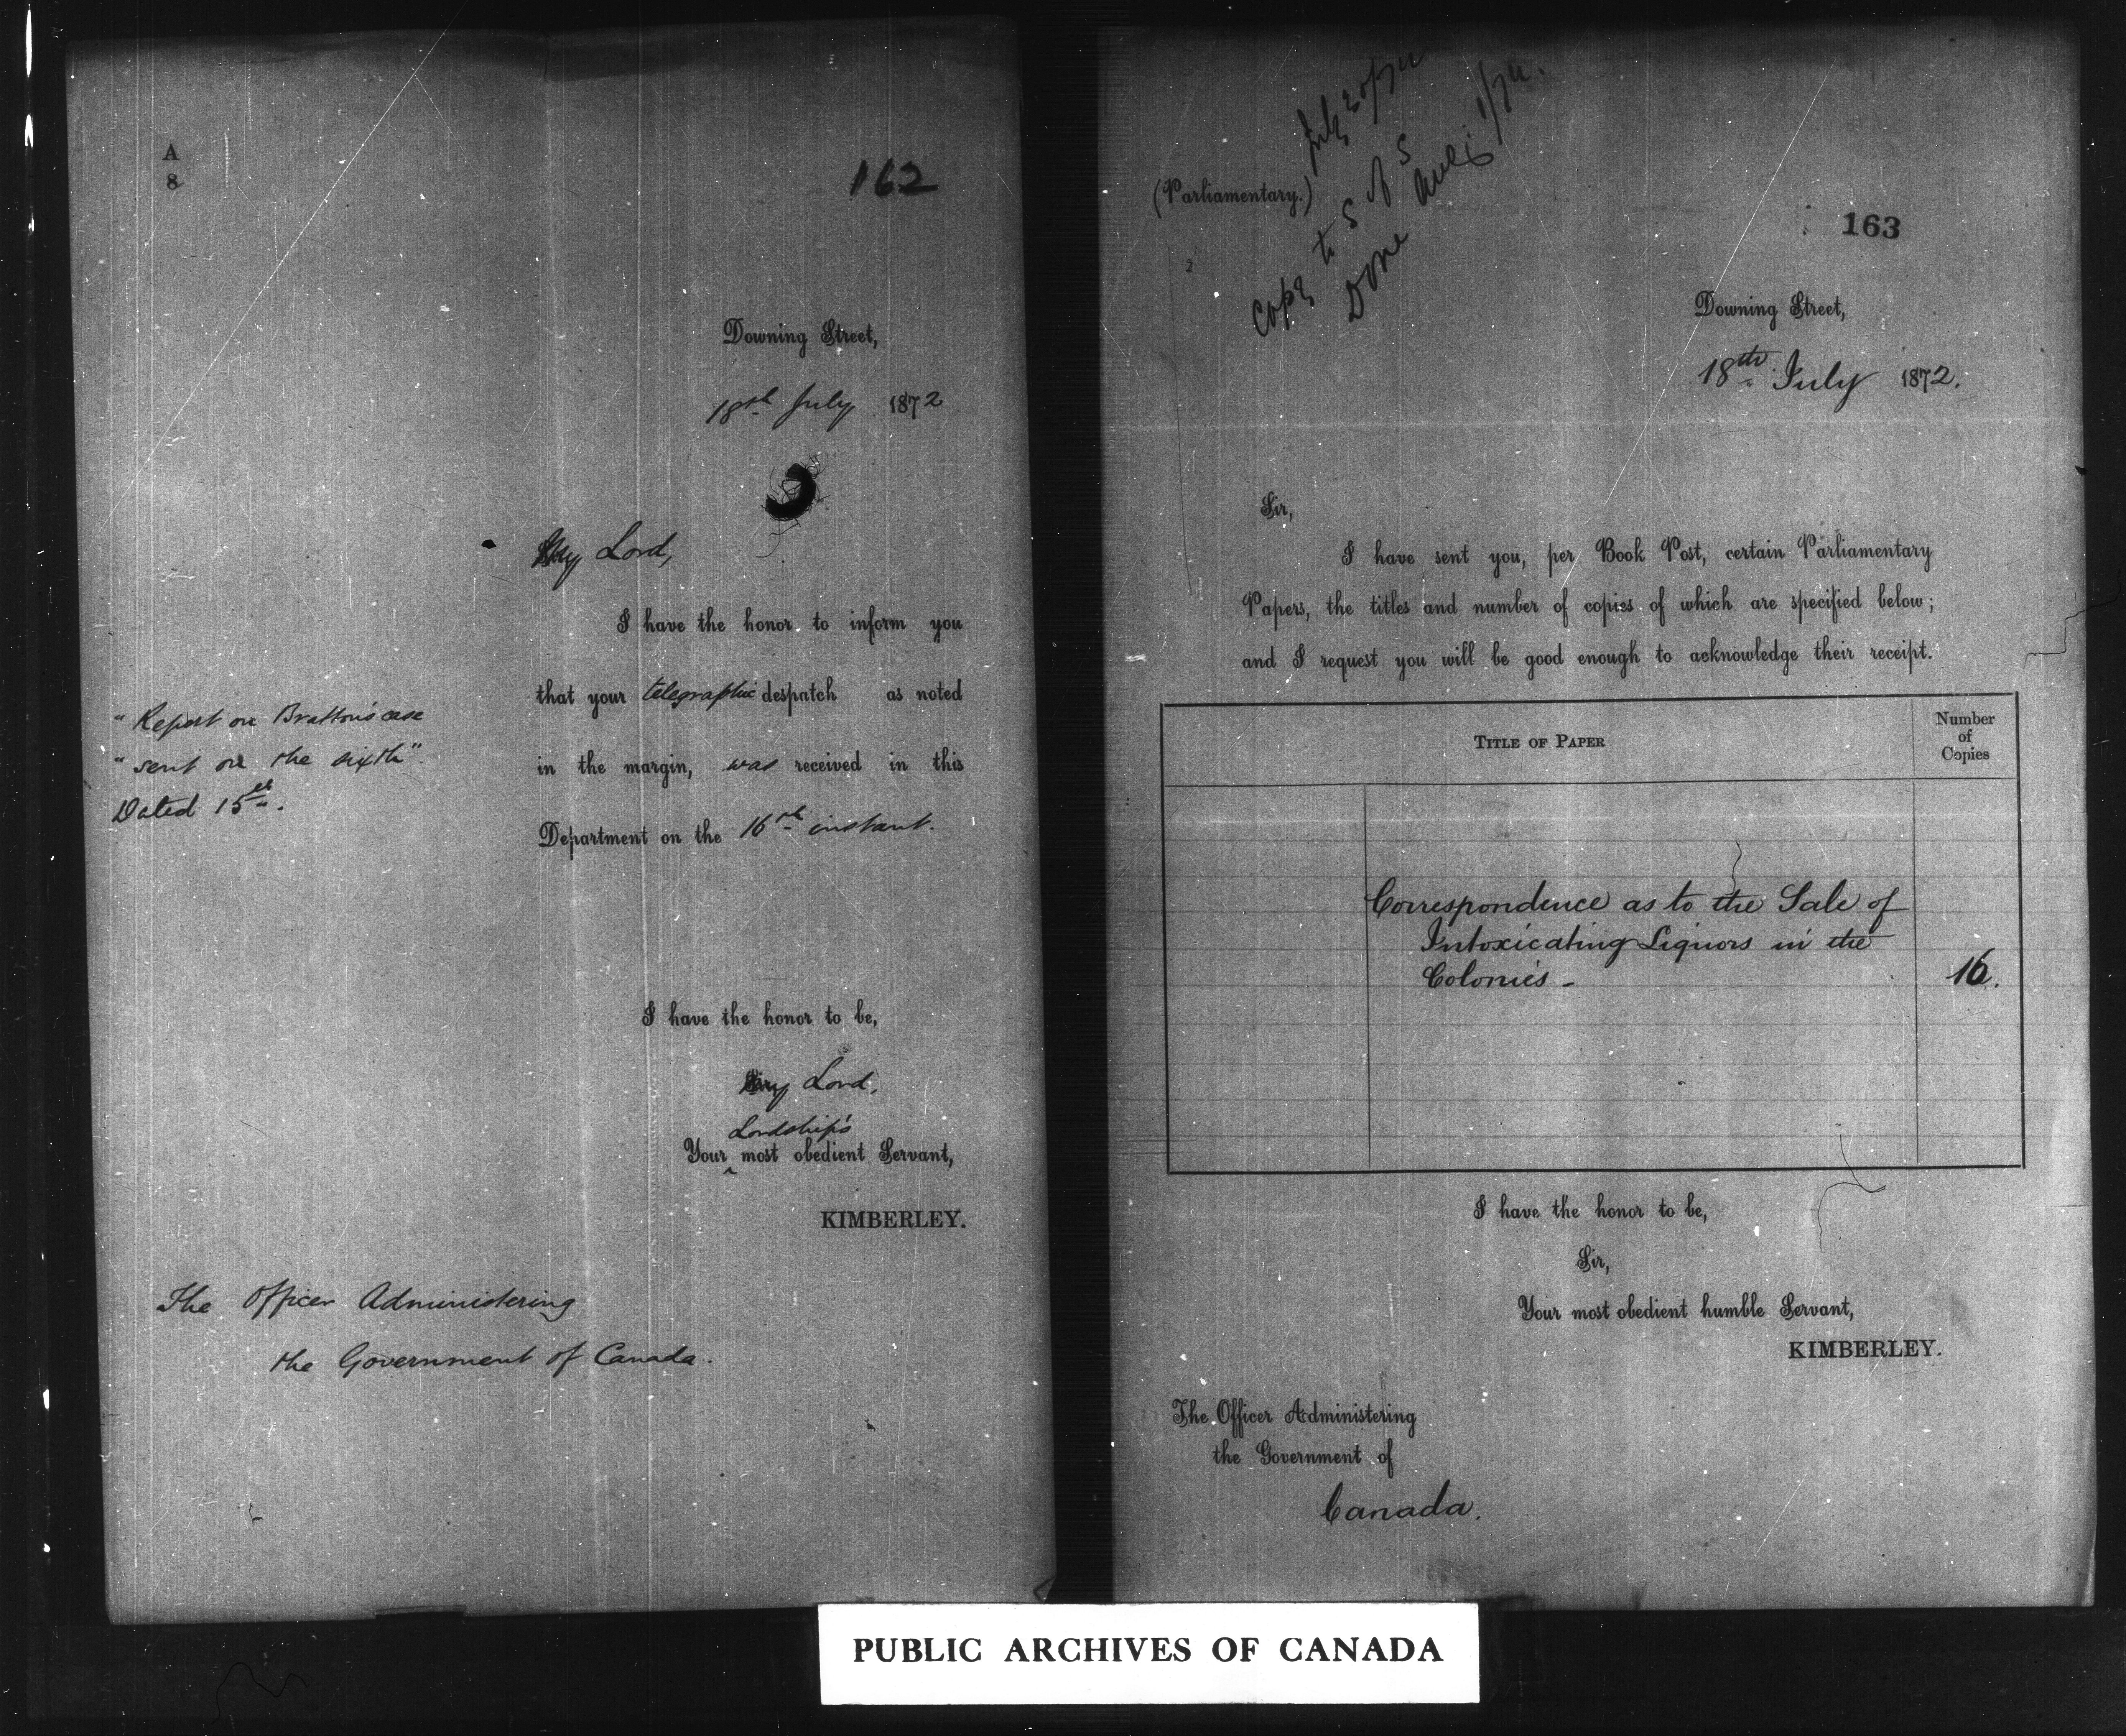 A
8
162
Downing Street,
18th July 1872
My Lord,
I have the honor to inform you
that your telegraphic despatch as noted
in the margin, was received in this
Department on the 16th instant.
"Report on Bratton's case
"sent on the sixth".
Dated 15th.
I have the honor to be,
My Lord,
Lordship's
Your ^ most obedient Servant,
KIMBERLEY.
The Officer Administering
the Government of Canada.
(Parliamentary.)
July 30/72
Copy to S of S
Done
1/72.
163
2
Downing Street,
18th July 1872.
Sir,
I have sent you, per Book Post, certain Parliamentary
Papers, the titles and number of copies of which are specified below;
and I request you will be good enough to acknowledge their receipt.
TITLE OF PAPER
Number
of
Copies
Correspondence as to the Sale of
Intoxicating Liquors in the
Colonies -
16.
I have the honor to be,
Sir,
Your most obedient humble Servant,
KIMBERLEY.
The Officer Administering
the Government of
Canada.
PUBLIC ARCHIVES OF CANADA